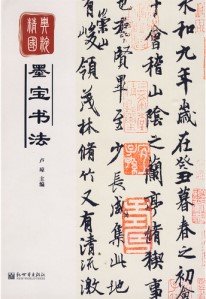 墨宝书法
卢琼 主编
新世界出版社
永和九年歲在癸丑暮春之初會
于會稽山陰之蘭亭脩稧事
也羣賢畢至少長咸集此地
有崇山峻領茂林脩竹又有清流激